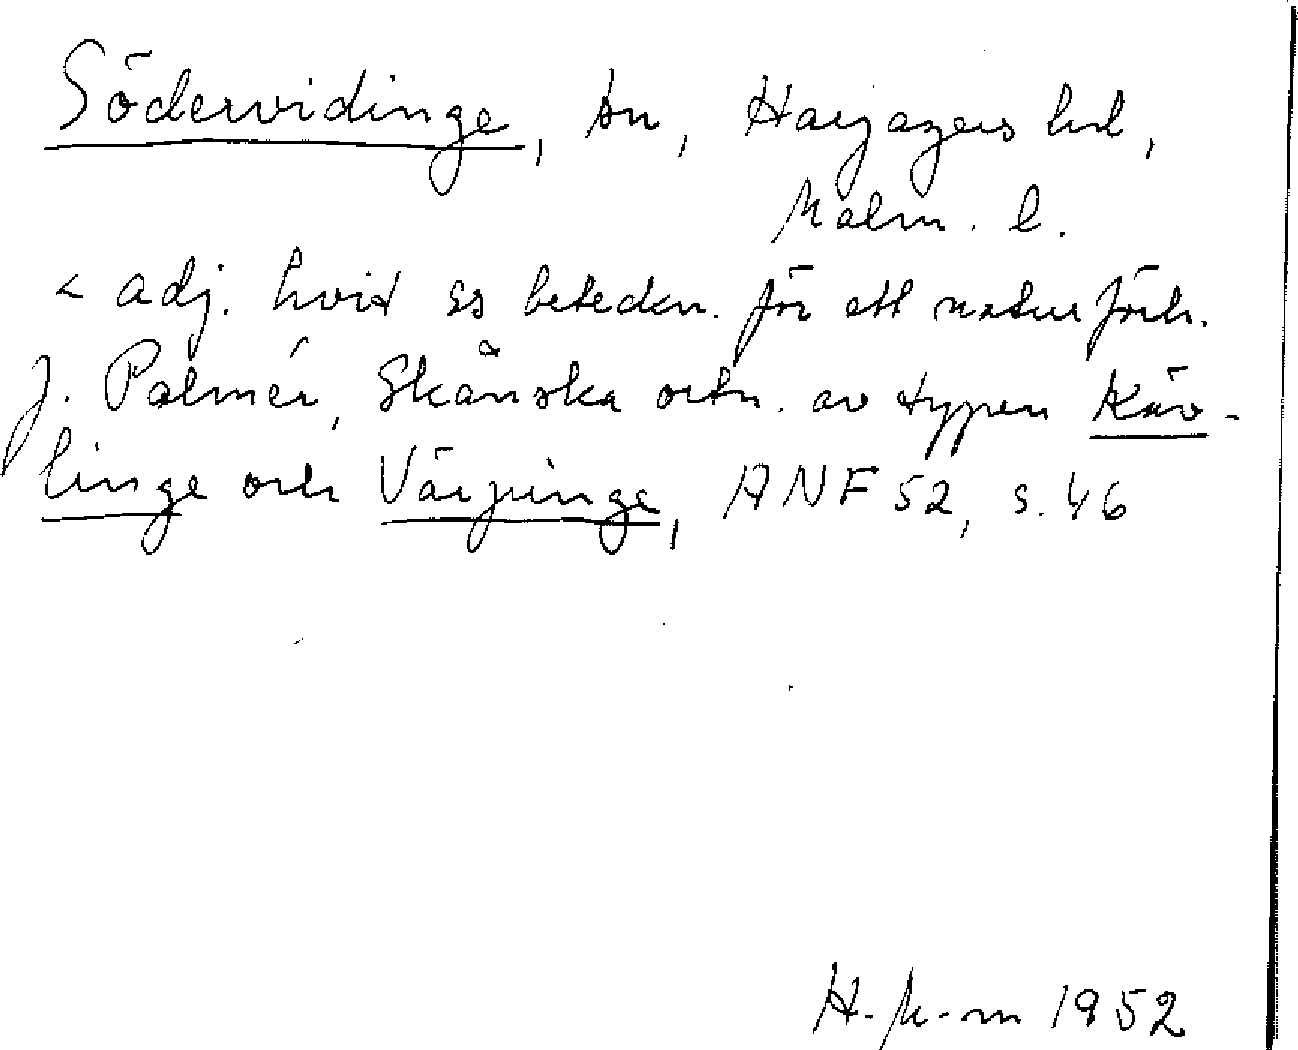 Södervidinge, sn, Harjagers hd,
Malm. l.
< adj. hvit ss beteckn. för ett naturförh.
J. Palmér, Skånska ortn. av typen Käv-
linge och Värpinge, ANF 52, s. 46
H. M-m 1952